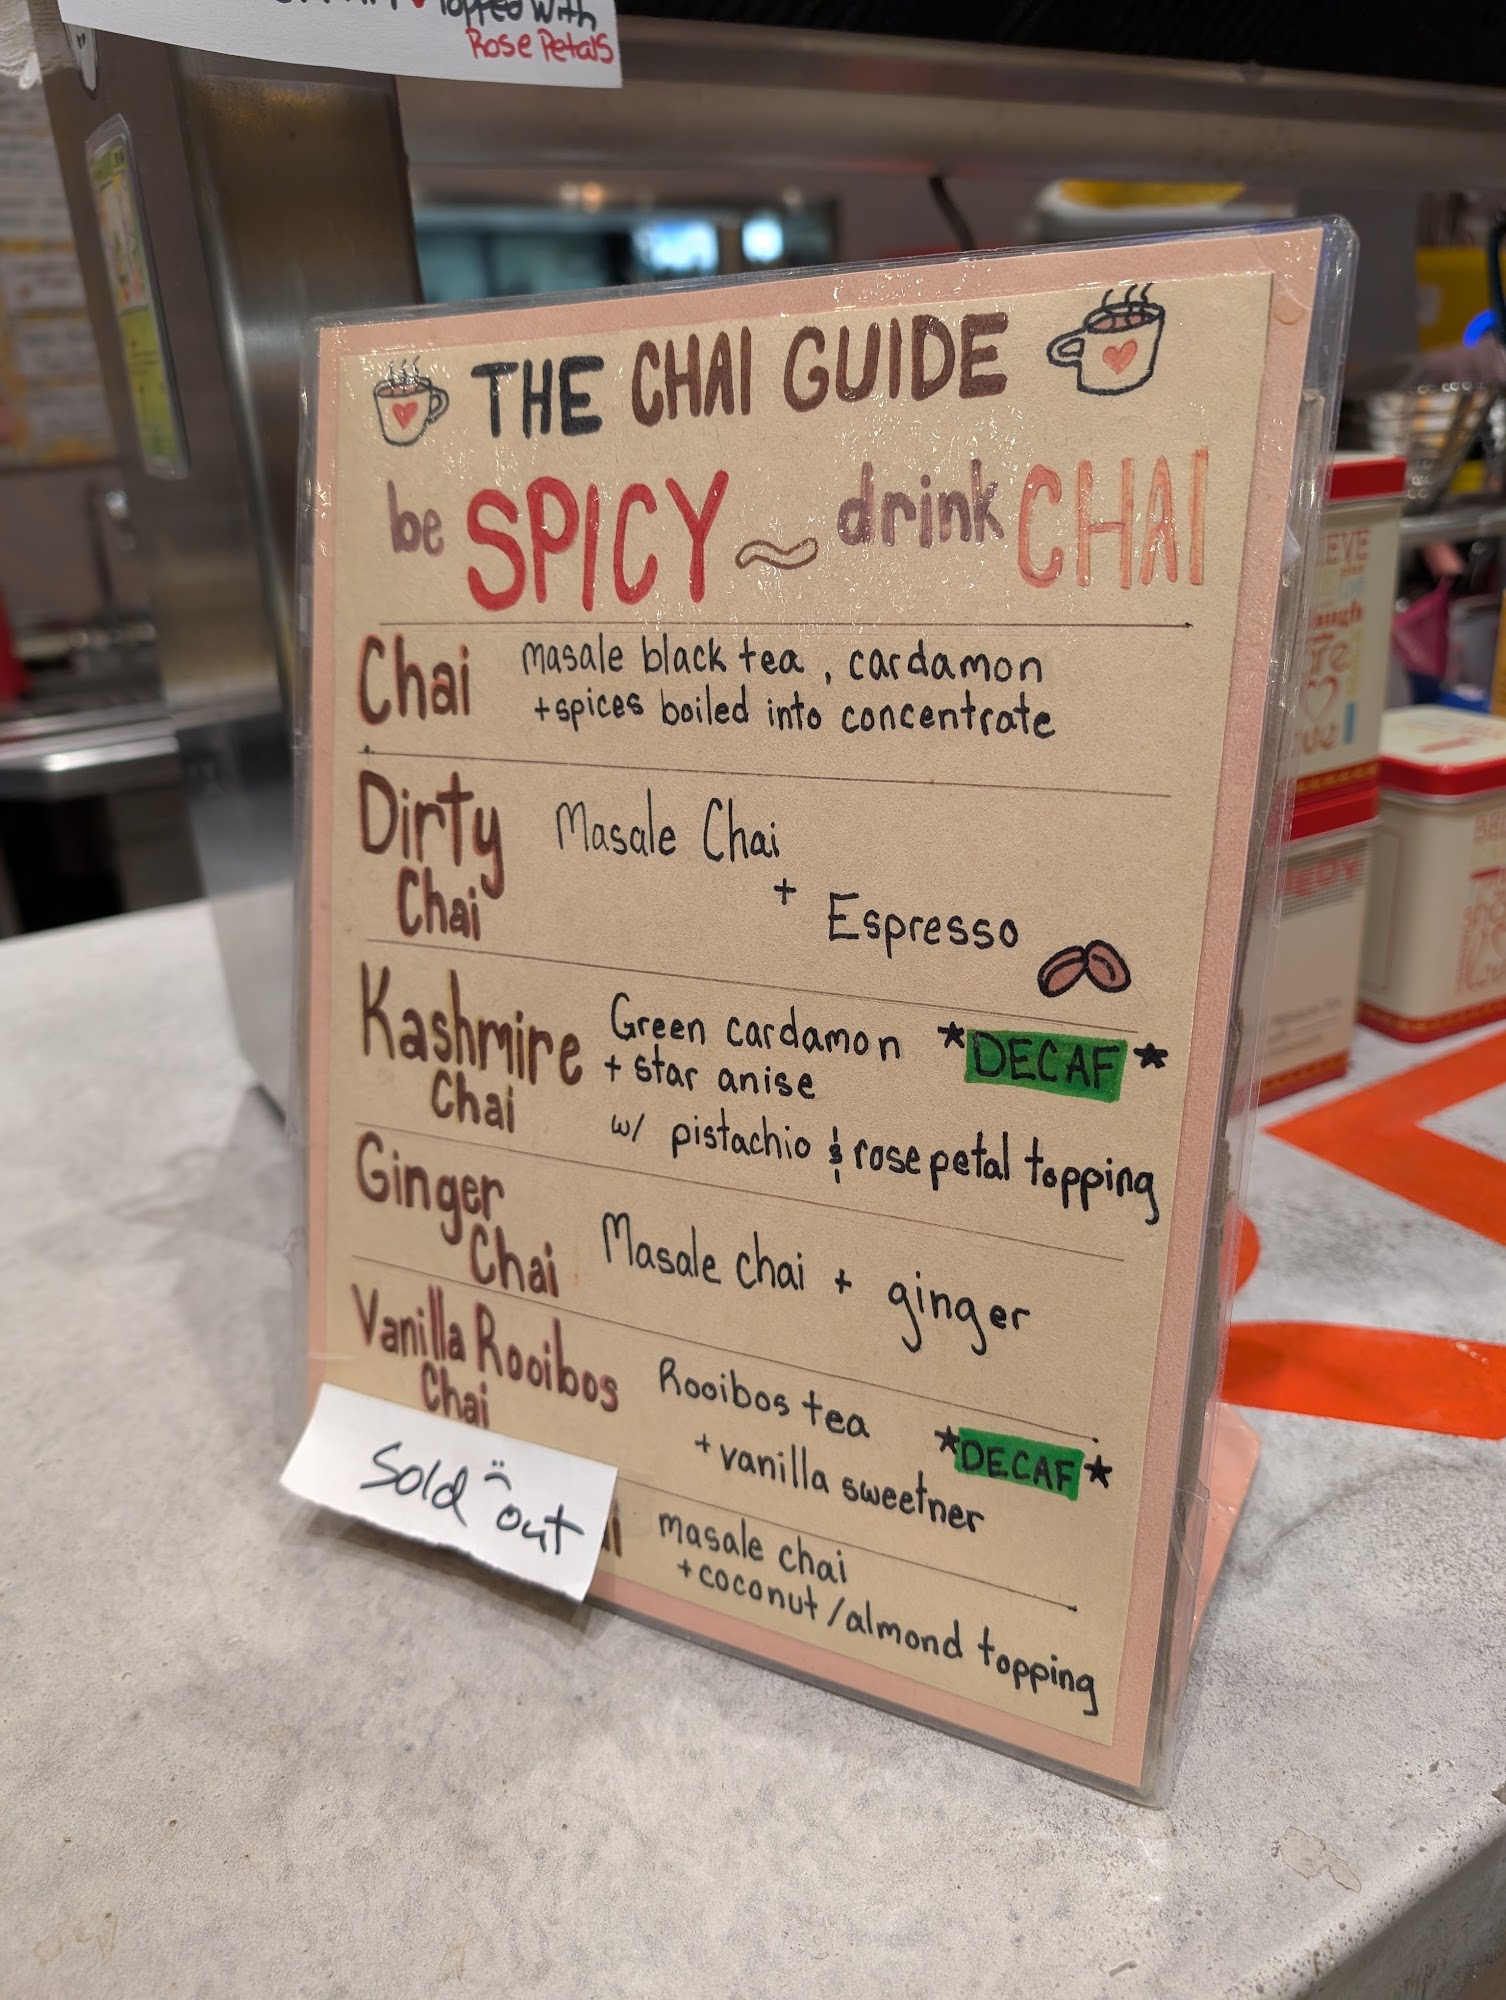 Topped with
Rose Petals
THE CHAI GUIDE
be SPICY ~ drink CHAI
Chai
masale black tea, cardamon
+spices boiled into concentrate
Dirty
Chai
Masale Chai
+
Espresso
Kashmire
Chai
Green cardamon
+ star anise
*DECAF*
w/ pistachio & rose petal topping
Ginger
Chai
Masale chai + ginger
Vanilla Rooibos
Chai
Rooibos tea
+vanilla sweetner
*DECAF*
Sold out
masale chai
+coconut/almond topping